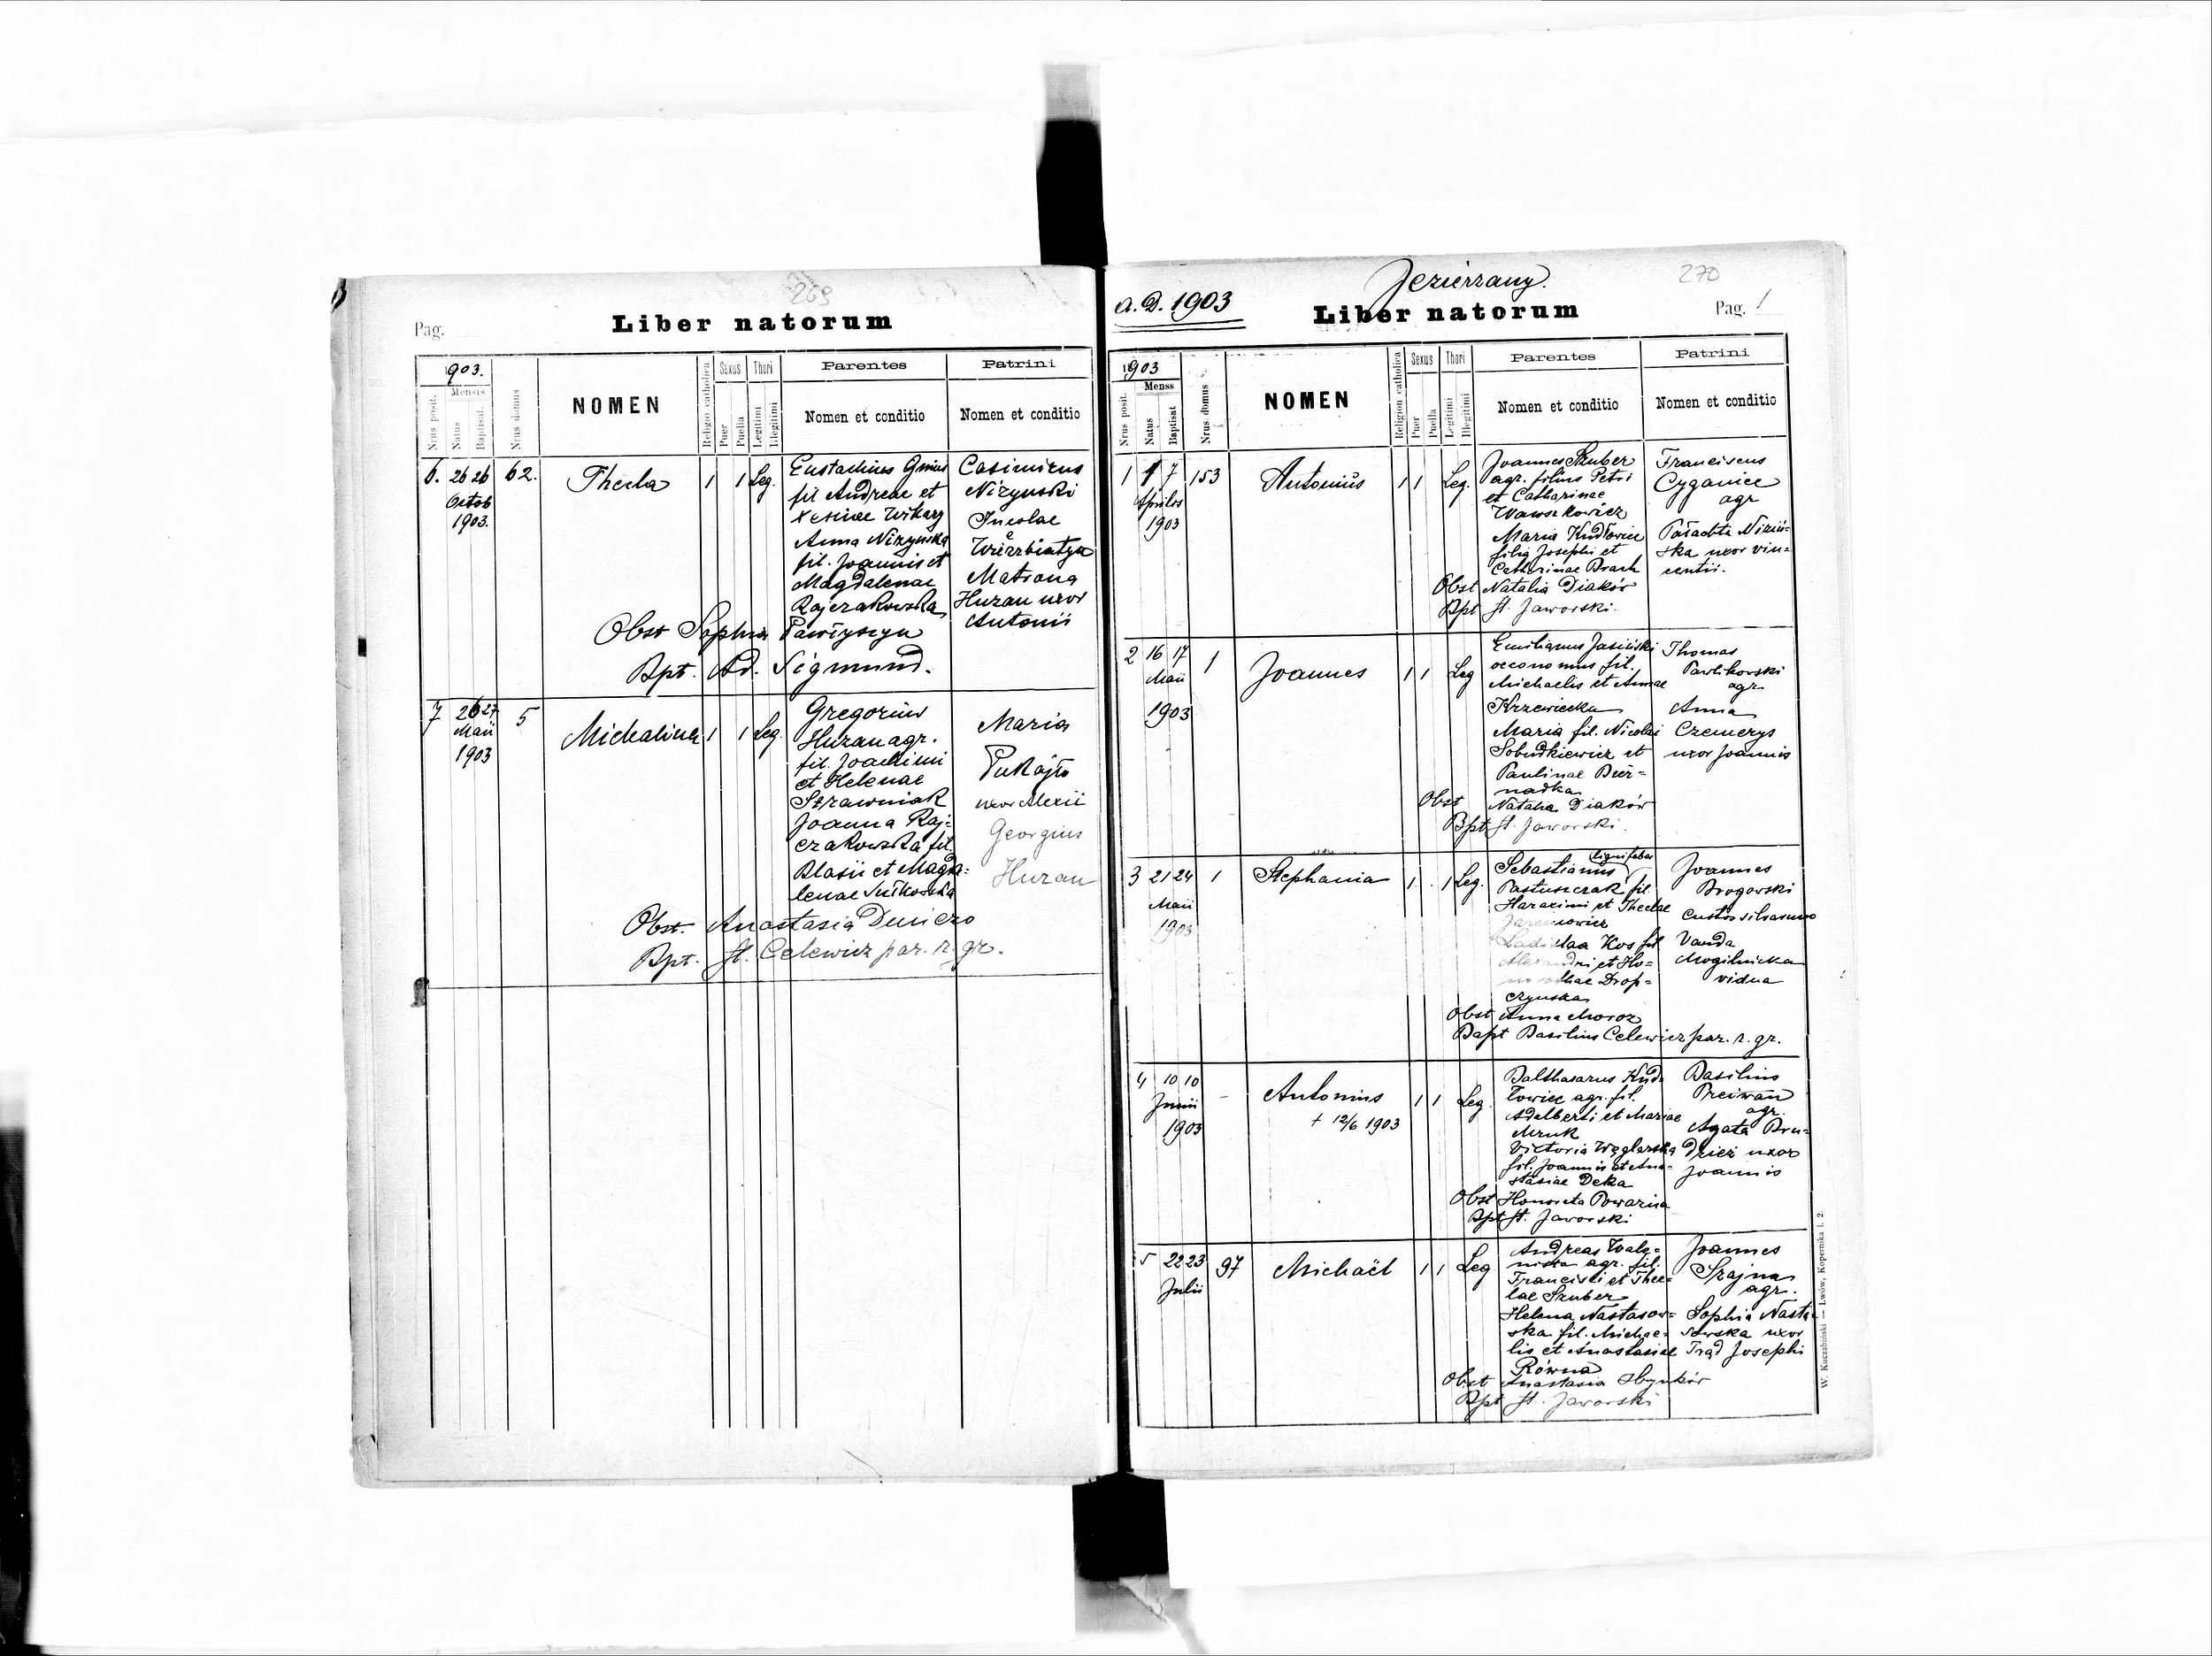 269
Pag.
Liber natorum
1903.
Mensis
Nrus posit.
Natus
Baptisat.
Nrus domus
NOMEN
Religio catholica
Sexus
Puer
Puella
Thori
Legitimi
Illegitimi
Parentes
Nomen et conditio
Patrini
Nomen et conditio
6. 26 26 62. Thecla 1 1 Leg.
Octob
1903.
Eustachius
fil Andreae et
Xeniae Wikary
Anna Nizynska
fil. Joannis et
Magdalenae
Rajczakowska
Casimirus
Nizynski
Incolae
Wierzbiatyn
Matrona
Huzan uxor
Antonii
Obst Sophia Pawlyszyn
Bpt. Ad. Sigmund.
7 26 27 5 Michalina 1 1 Leg.
Maii
1903
Gregorius
Huzan agr.
fil. Joachimi
et Helenae
Strawniak
Joanna Raj=
czakowska fil.
Blasii et Magda=
lenae
Maria
Pukajło
uxor Alexii
Georgius
Huzan
Obst. Anastasia
Bpt. Celewicz par. r. gr.
Jezierzany.
270
a. D. 1903
Liber natorum
Pag. 1
1903
Menss
Nrus posit.
Natus
Baptisat
Nrus domus
NOMEN
Religion catholica
Sexus
Puer
Puella
Thori
Legitimi
Illegitimi
Parentes
Nomen et conditio
Patrini
Nomen et conditio
1 1 7 153 Antonius 1 1 Leg.
Aprilis
1903
Joannes Szuber
agr. filius Petri
et Catharinae
Wawszkowicz
Maria Kudłowiec
filia Josephi et
Catherinae Brach
Franciscus
Cyganiec
agr
Nizin=
ska uxor Vin=
centii.
Obst Natalia Diaków
Bpt St. Jaworski.
2 16 17 1 Joannes 1 1 Leg
Maii
1903
Emilianus Jasiński
oeconomus fil.
Michaelis et Annae
Krzewiecka
Maria fil. Nicolai
Sobudkiewicz et
Paulinae Bier=
nadka
Thomas
Pawlikowski
agr.
Anna
Czemerys
uxor Joannis
Obst Natalia Diaków
Bpt St. Jaworski.
3 21 24 1 Stephania 1 1 Leg.
Maii
1903
lignifaber
Sebastianus
Pastuszczak fil
Haracimi et Theclae
Ladislaa Kos fil
Alexandri et Ho=
Drop=
czynska
Joannes
Brogowski
custos silvarum
Vanda
Mogilnicka
vidua
Obst Anna Moroz
Bapt Basilius Celewicz par. r. gr.
4 10 10 - Antonius 1 1 Leg.
Junii
1903
+ 12/6 1903
Balthasarus Kud=
łowiec agr. fil.
Adalberti et Mariae
Mruk
Victoria Węglarska
fil. Joannis et Ana=
stasiae Deka
Basilius
Preiwan
agr.
Agata Bru=
dziez uxor
Joannis
Obst Honorata Powazna
Bpt St. Jaworski
5 22 23 97 Michaël 1 1 Leg
Julii
Andreas
agr. fil.
Francisci et Thec=
lae Szuber
Helena Nastasow=
ska fil. Michae=
lis et Anastasiae
Równa
Joannes
Szajna
agr.
Sophia Nasta=
sowska uxor
Josephi
Obst Anastasia
Bpt St. Jaworski
W. Kuczabiński — Lwów, Kopernika l. 2.